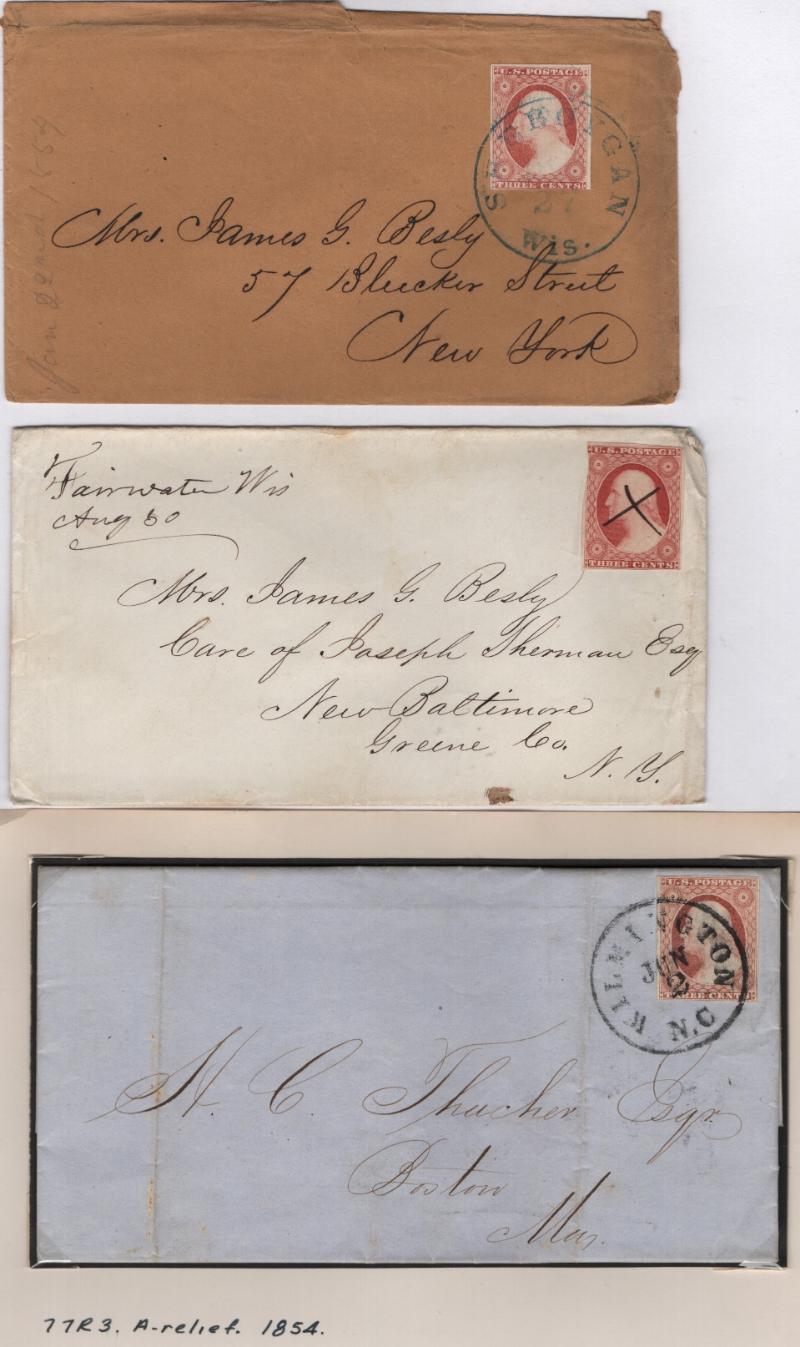 U.S. POSTAGE
THREE CENTS
SHEBOYGAN
27
Wis.
Jan 22nd 1854
Mrs. James G. Besly
57 Bleecker Street
New York
Fairwater Wis
Aug 30
U.S. POSTAGE
THREE CENTS
Mrs. James G. Besly
Care of Joseph Sherman Esq
New Baltimore
Greene Co.
N. Y.
U.S. POSTAGE
THREE CENTS
WILMINGTON
JUN
2
N.C
H. C. Thacher Esqr.
Boston
Mas.
77R3. A-relief. 1854.